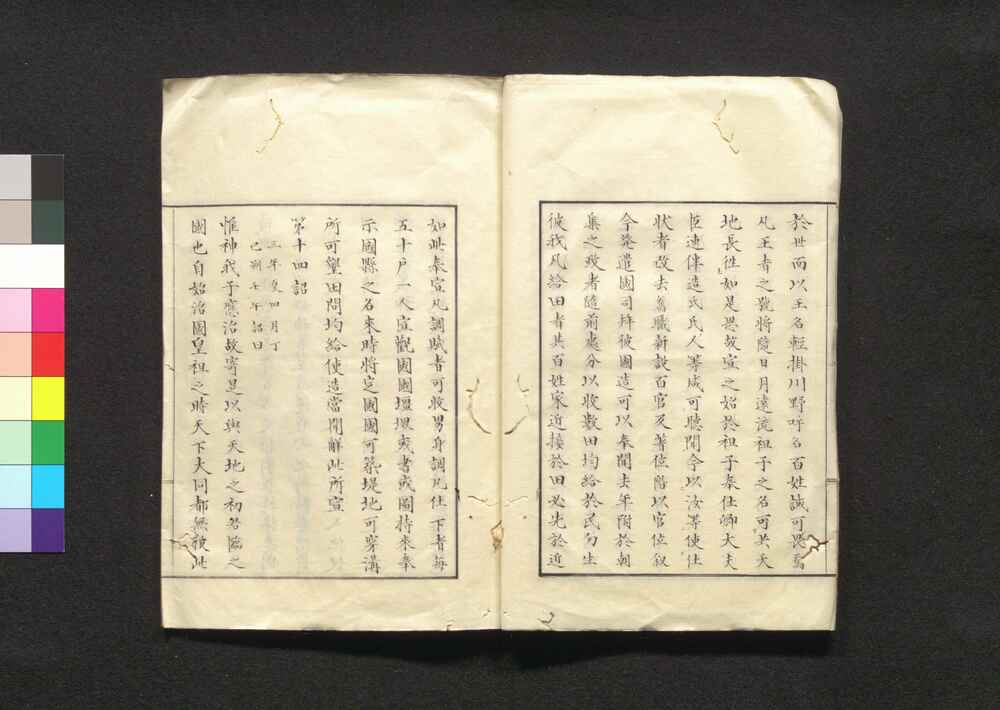 於世而以王名輕掛川野呼名百姓誠可畏焉
凡王者之號將隨日月遠流祖子之名可共天
地長往如是思故宣之始於祖子奉仕卿大夫
臣連伴造氏氏人等咸可聽聞今以汝等使仕
狀者改去舊職新設百官及著位階以官位叙
今發遣國司并彼國造可以奉聞去年附於朝
集之政者隨前處分以收數田均給於民勿生
彼我凡給田者其百姓家近接於田必先於近
如此奉宣凡調賦者可收男身調凡仕丁者每
五十戶一人宜觀國國壃堺或書或圖持來奉
示國縣之名來時將定國國可築堤地可穿溝
所可墾田間均給使造當聞解此所宣
第十四詔
三年夏四月丁
巳朔壬午詔曰
惟神我子應治故寄是以與天地之初君臨之
國也自始治國皇祖之時天下大同都無彼此